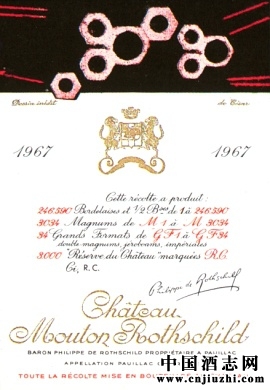 Dessin inédit de César
1967 1967
Cette récolte a produit :
246.390 Bordelaises et ½ Bses de 1 à 246.390
3034 Magnums de M 1 à M 3034
34 Grands Formats de GF 1 à GF 34
double magnums, jéroboams, impériales
3000 "Réserve du Château" marquées R.C
Ce, R.C.
Philippe de Rothschild
Château
Mouton Rothschild
BARON PHILIPPE DE ROTHSCHILD PROPRIÉTAIRE A PAUILLAC
APPELLATION PAUILLAC
TOUTE LA RÉCOLTE MISE EN
中国酒志网
www.cnjiuzhi.com